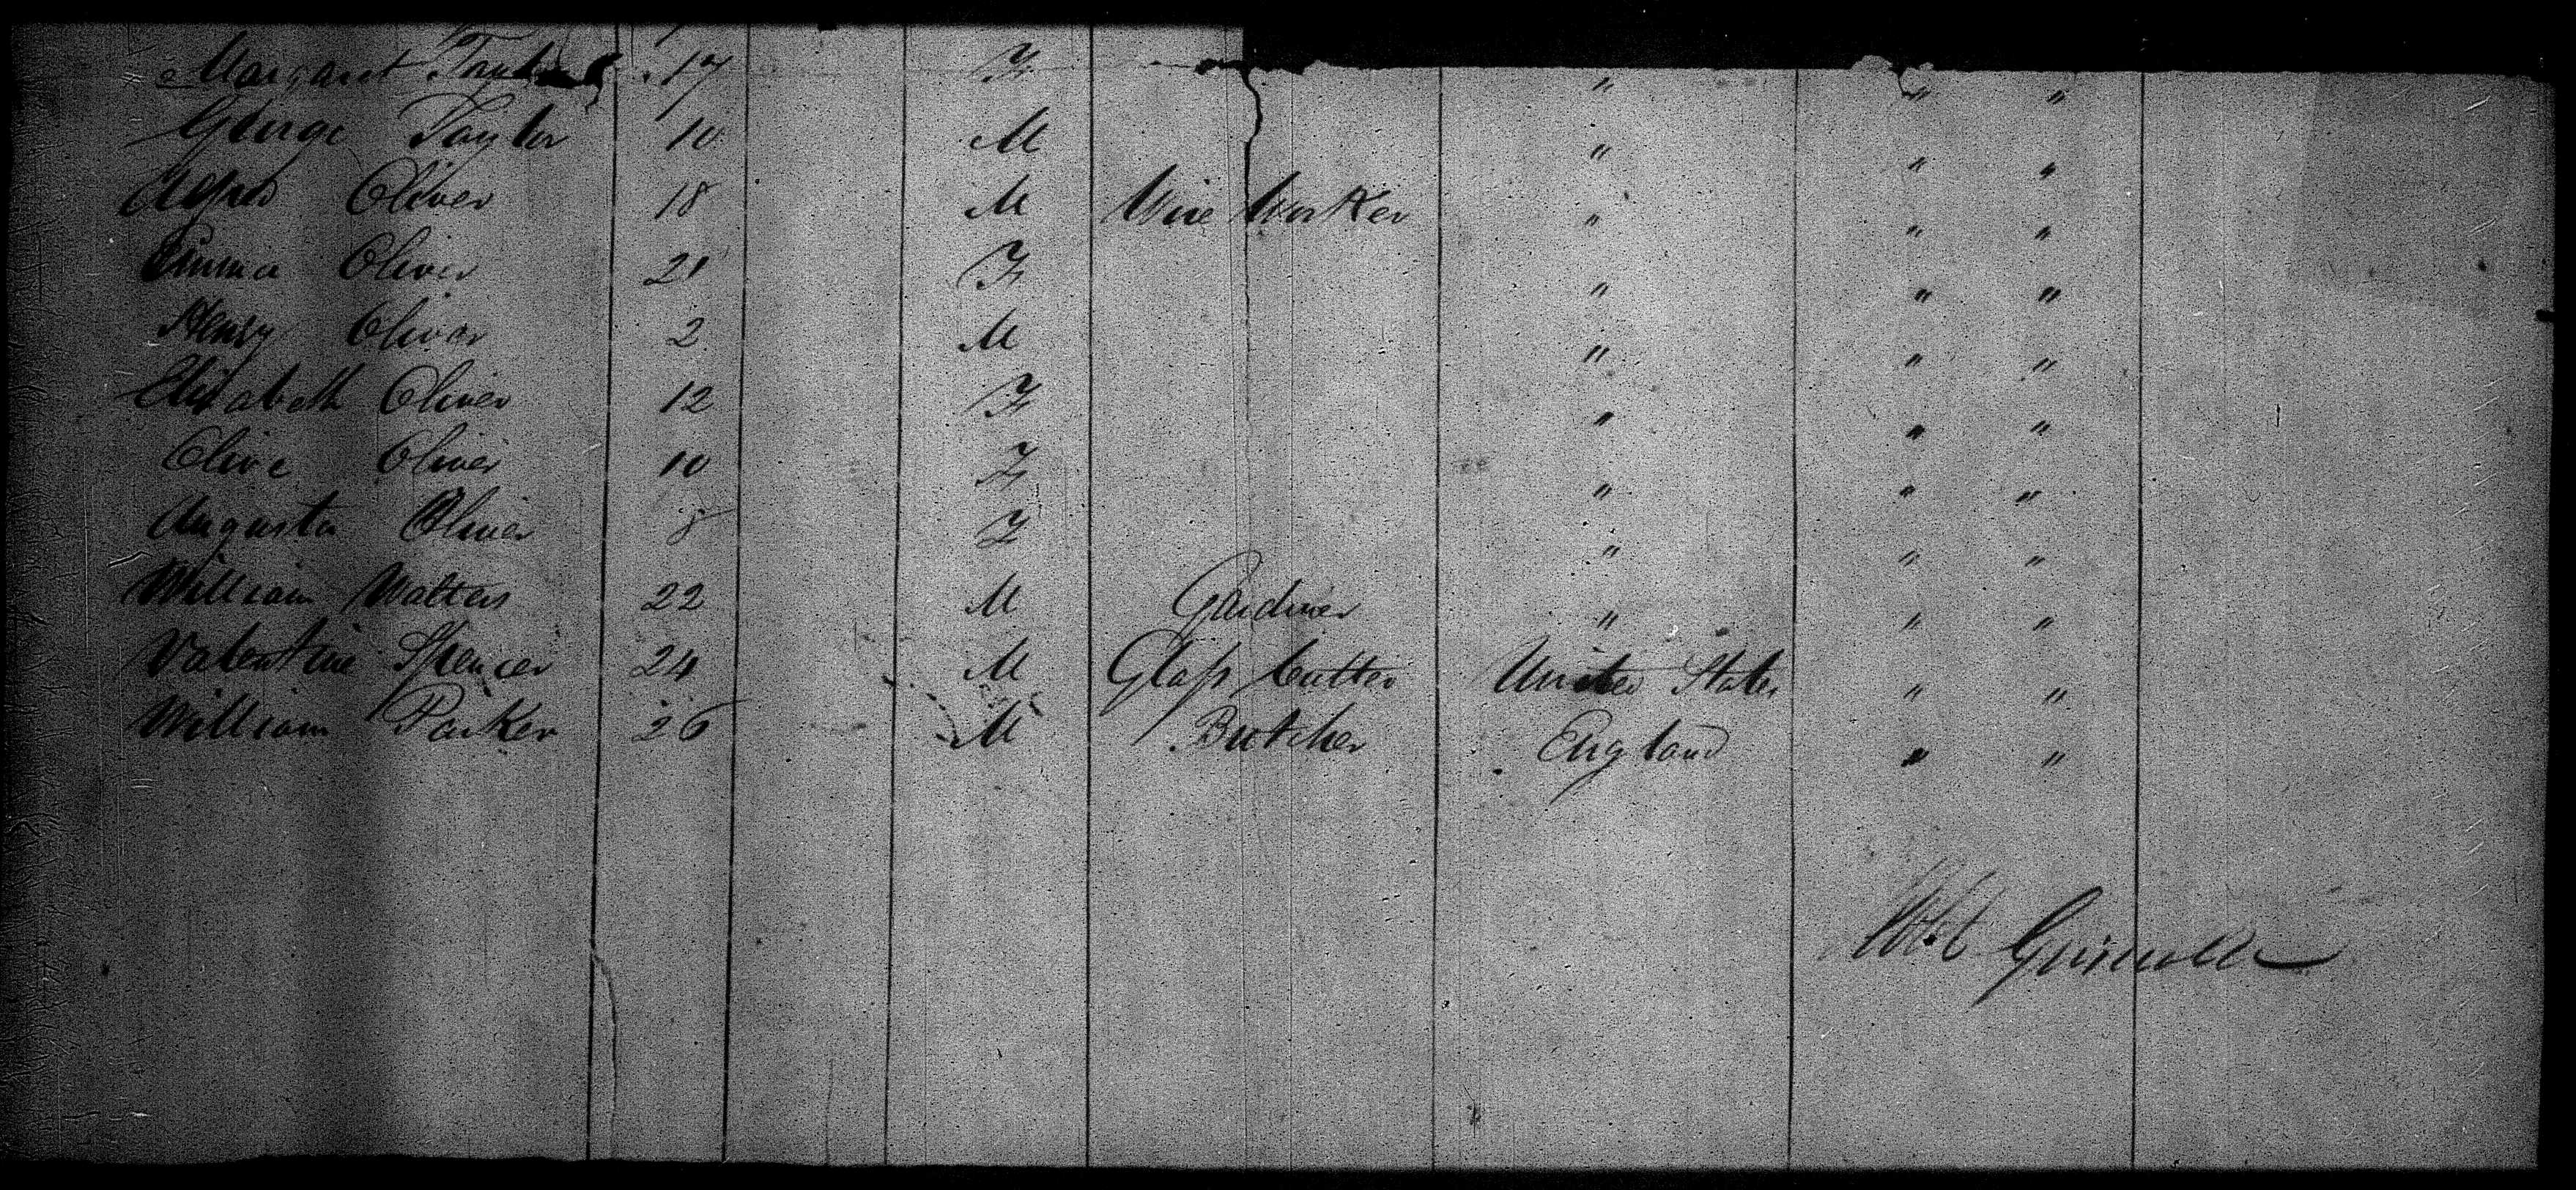 Margaret Taylor 17 F " " "
George Taylor 10 M " " "
Alfred Oliver 18 M Wire Worker " " "
Emma Oliver 21 F " " "
Henry Oliver 2 M " " "
Elisabeth Oliver 12 F " " "
Olive Oliver 10 F " " "
Augusta Oliver 8 F " " "
William Walters 22 M Gardiner " " "
Valentine Spencer 24 M Glass Cutter United States " "
William Parker 26 M Butcher England " "
Grinnell